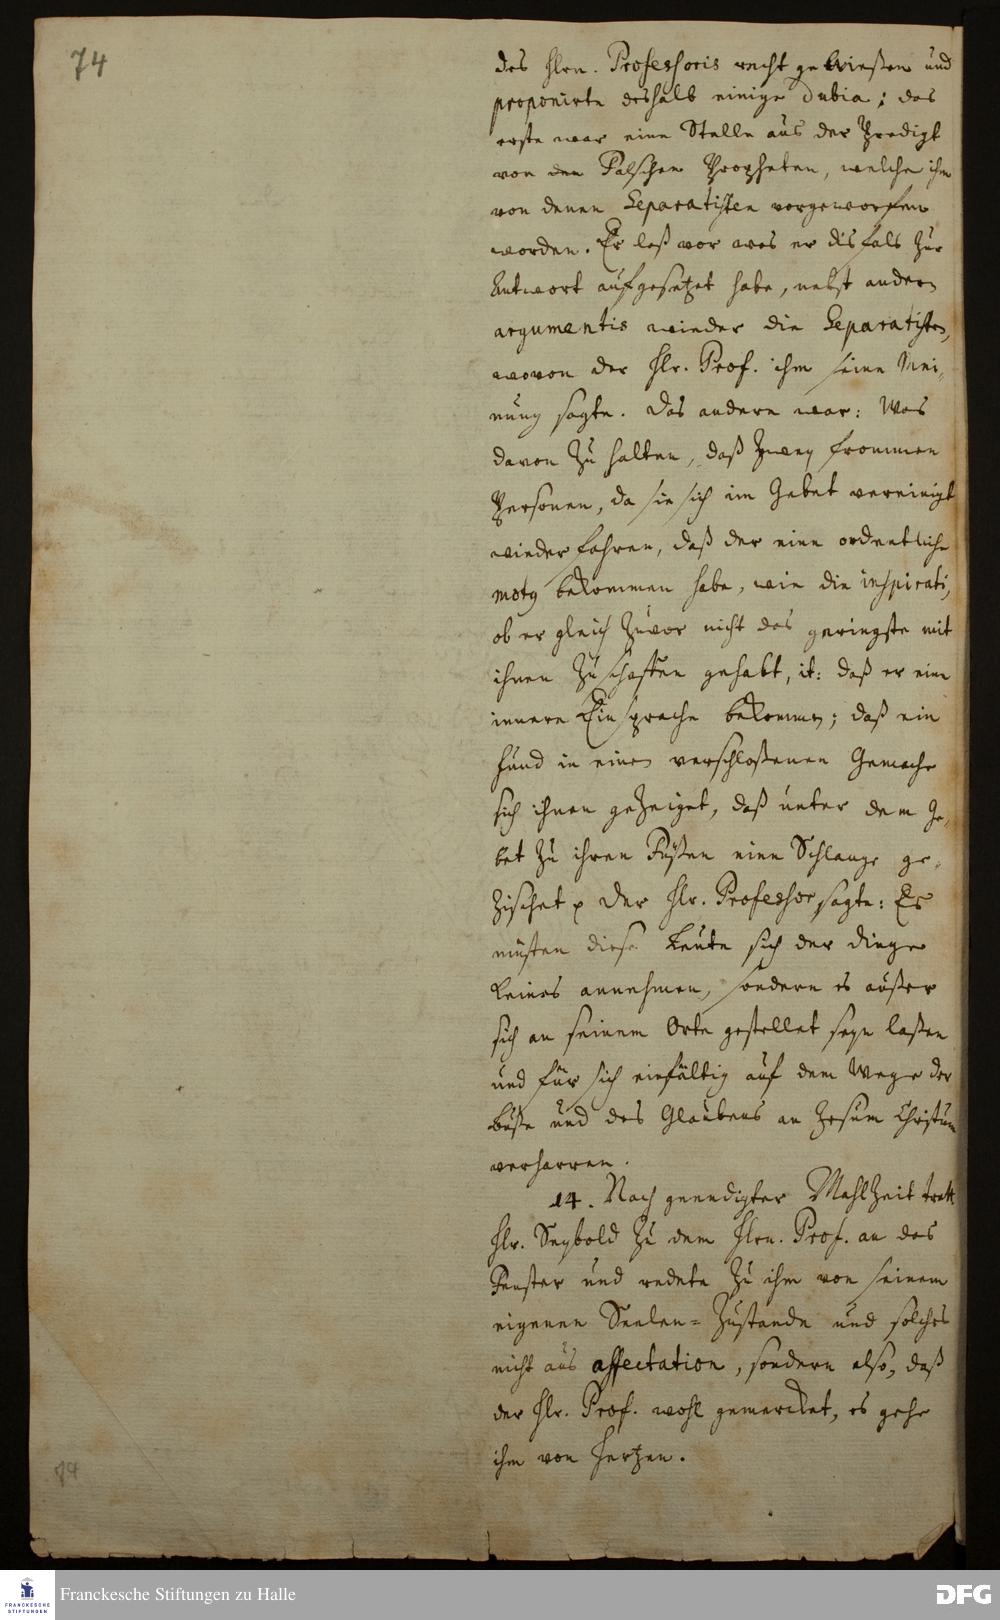 74
des Hrn. Professoris recht gewiesen und
proponirte deshalb einige dubia; das
erste war eine Stelle aus der Predigt
von den Falschen Propheten, welche ihm
von denen Separatisten vorgeworffen
worden. Er laß vor was er disfals zur
Antwort aufgesetzet habe, nebst andern
argumentis wieder die Separatisten,
wovon der Hr. Prof. ihm seine Mei-
nung sagte. Das andere war: Was
davon zu halten, daß zwey frommen
Personen, da sie sich im Gebet vereinigt
wiederfahren, daß der eine ordentliche
motq bekommen habe, wie die inspirati,
ob er gleich zuvor nicht das geringste mit
ihnen zu schaffen gehabt, it: daß er eine
innere Einsprache bekommen; daß ein
Hund in einem verschloßenen Gemache
sich ihnen gezeiget, daß unter dem Ge-
bet zu ihren Füßen eine Schlange ge-
zischet p Der Hr. Professor sagte: Es
müsten diese Leute sich der dinge
keines annehmen, sondern es außer
sich an seinem Orte gestellet seyn laßen
und für sich einfältig auf dem Wege der
Buße und des Glaubens an Jesum Christum
verharren.
14. Nach geendigter Mahlzeit tratt
Hr. Seybold zu dem Hrn. Prof. an das
Fenster und redete zu ihm von seinem
eigenen Seelen-Zustande und solches
nicht aus affectation, sondern also, daß
der Hr. Prof. wohl gemercket, es gehe
ihm von Hertzen.
74
FRANCKESCHE
STIFTUNGEN
Franckesche Stiftungen zu Halle
DFG